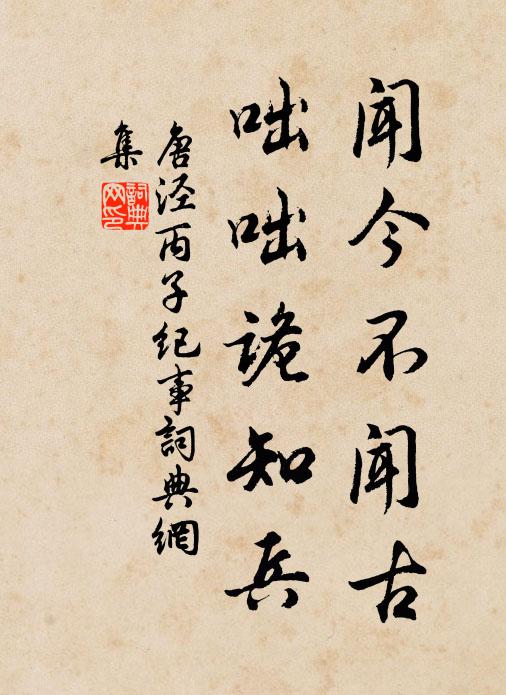 闻今不闻古
咄咄诡知兵
唐泾丙子纪事詞典網
集
詞典
网印